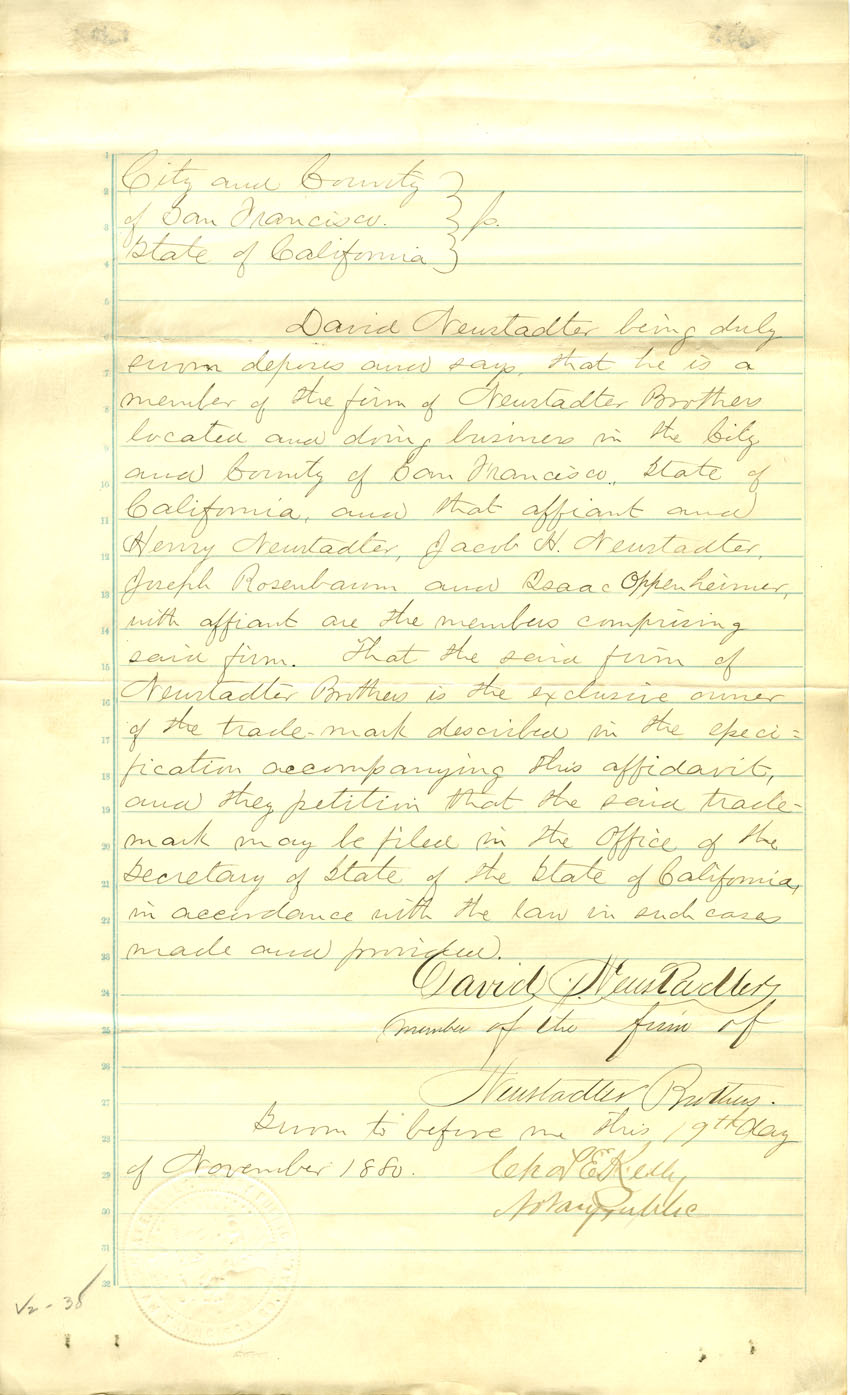 City and County
of San Francisco. } ss.
State of California
David Neustadter being duly
sworn deposes and says, that he is a
member of the firm of Neustadter Brothers
located and doing business in the City
and County of San Francisco, State of
California, and that affiant and
Henry Neustadter, Jacob H. Neustadter,
Joseph Rosenbaum and Isaac Oppenheimer,
with affiant are the members comprising
said firm. That the said firm of
Neustadter Brothers is the exclusive owner
of the trade-mark described in the speci=
fication accompanying this affidavit,
and they petition that the said trade-
mark may be filed in the Office of the
Secretary of State of the State of California,
in accordance with the law in such cases
made and provided.
David Neustadter
member of the firm of
Neustadter Brothers.
Sworn to before me this 19th day
of November 1880. Chas E Kelly
Notary Public
1
2
3
4
5
6
7
8
9
10
11
12
13
14
15
16
17
18
19
20
21
22
23
24
25
26
27
28
29
30
31
32